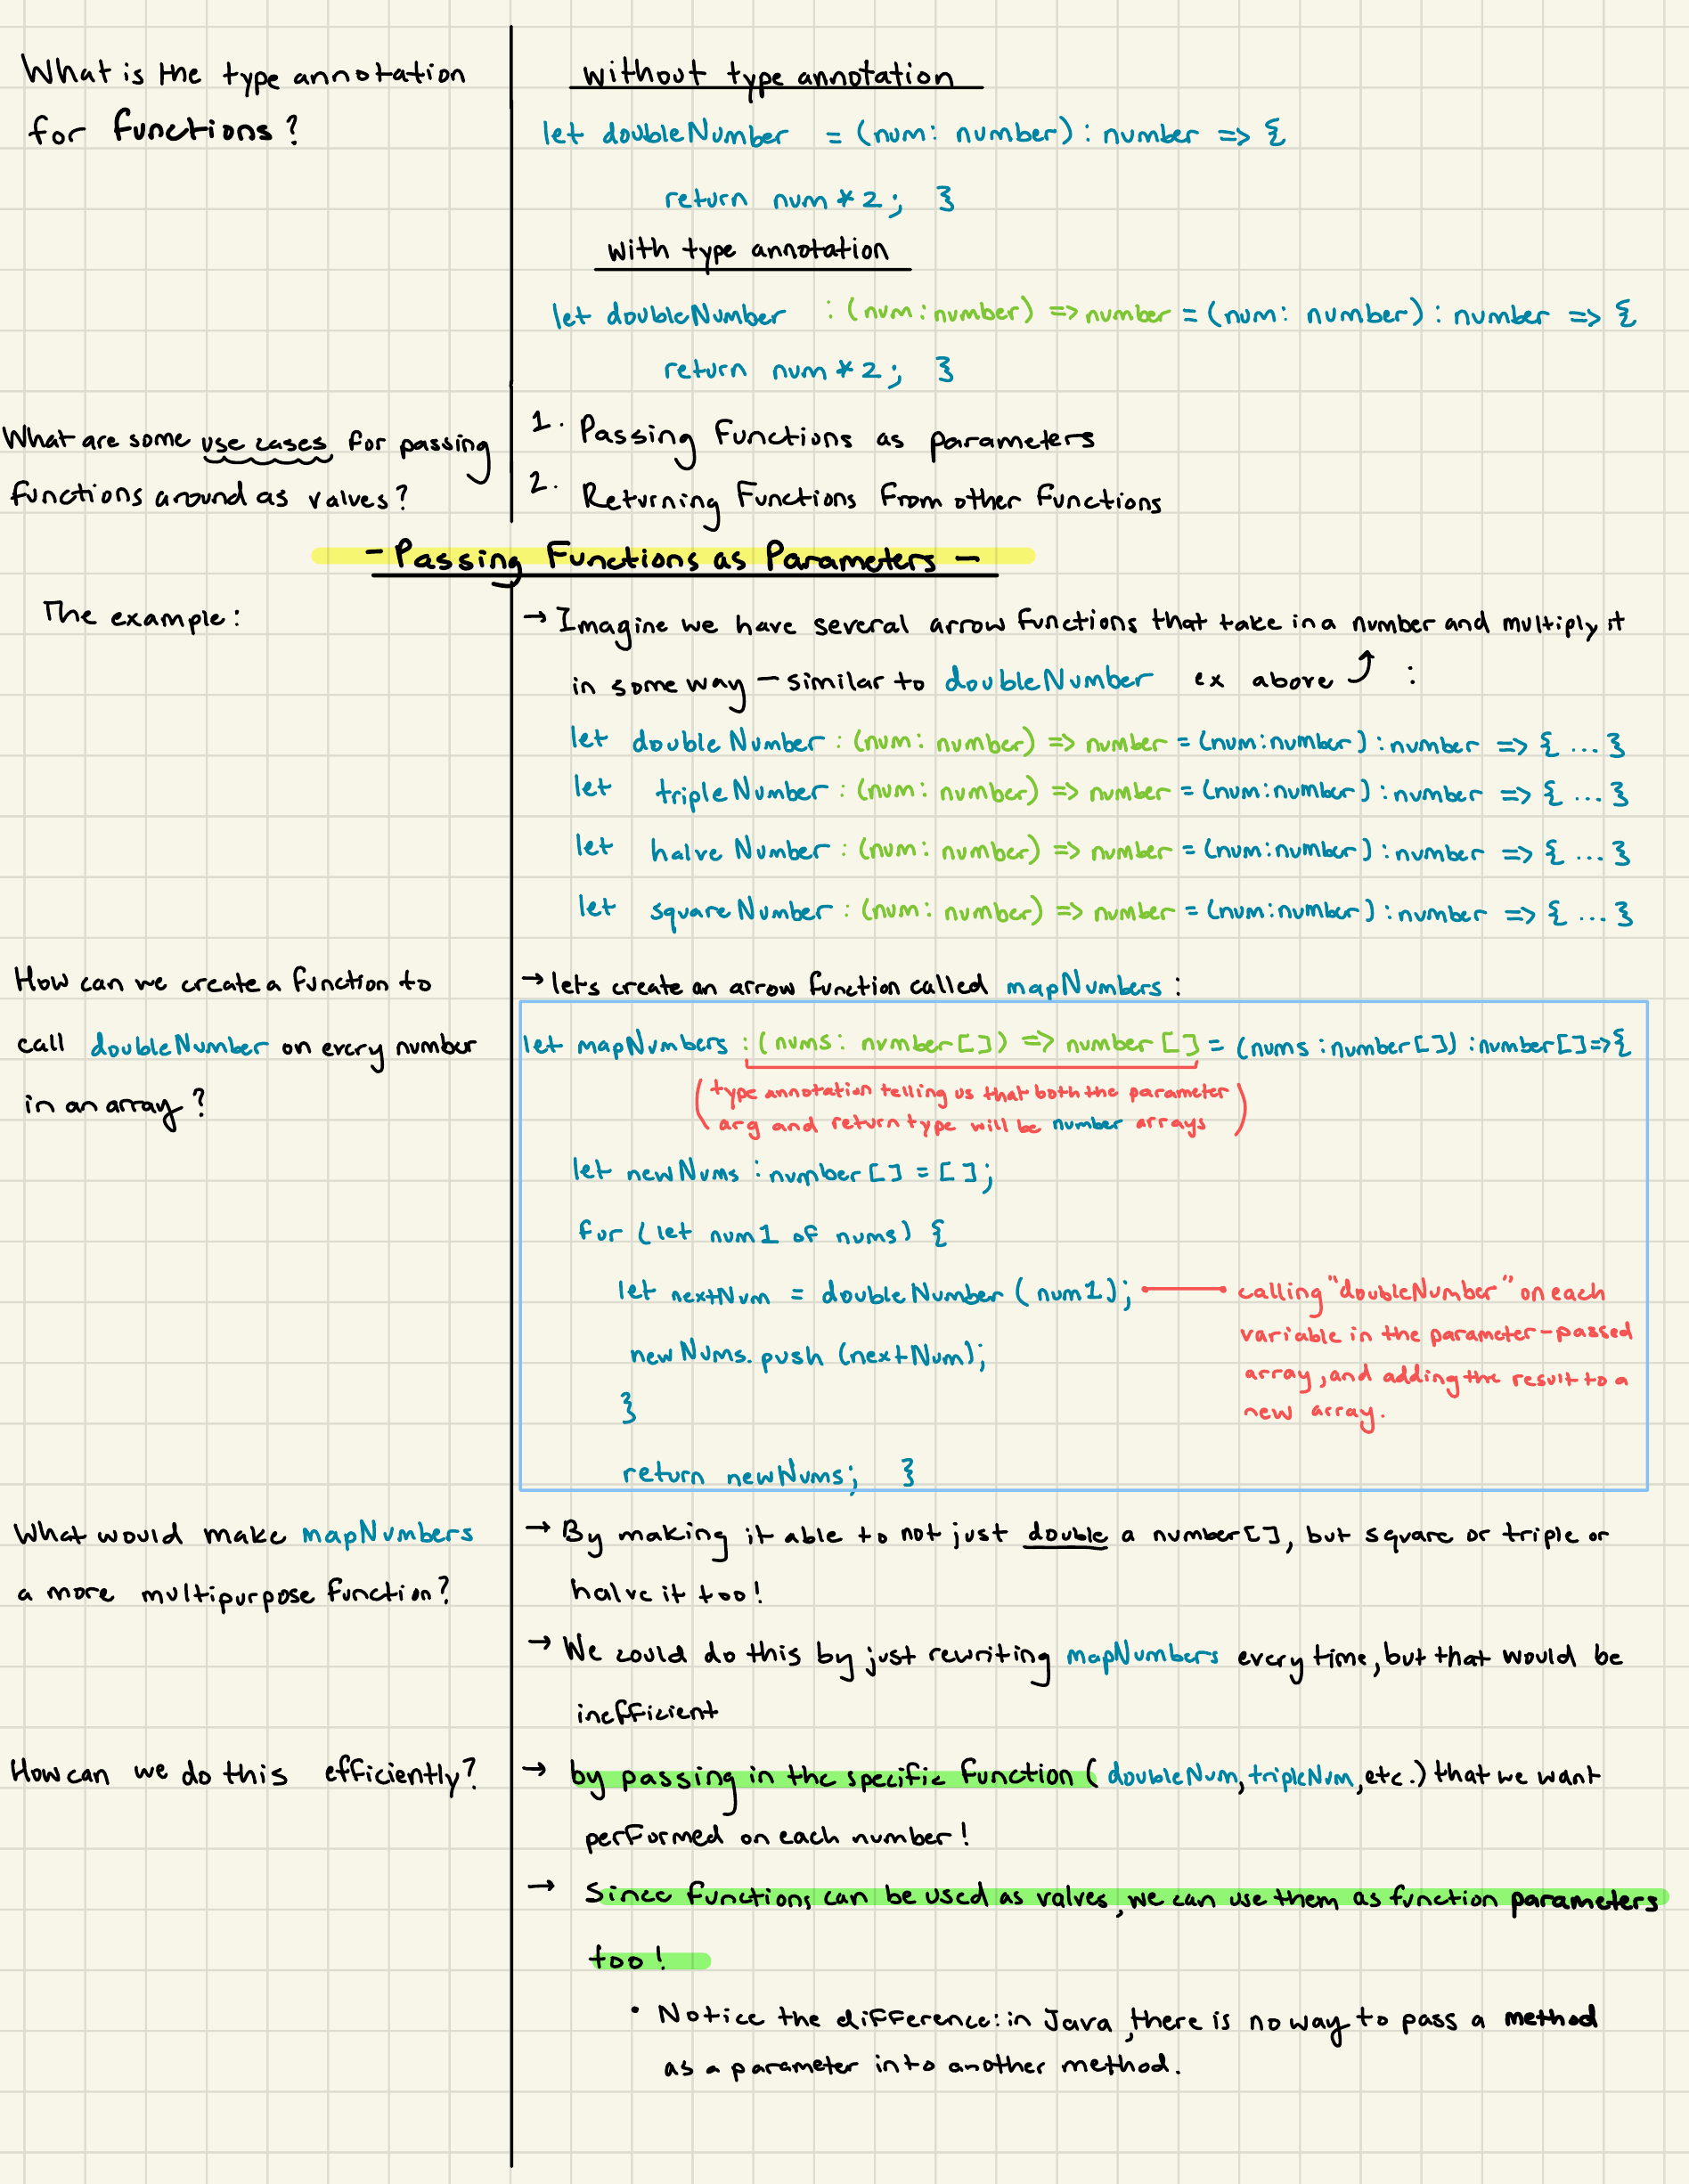 What is the type annotation
for functions?
without type annotation
let doubleNumber = (num: number): number => {
return num * 2; }
with type annotation
let doubleNumber : (num: number) => number = (num: number): number => {
return num * 2; }
What are some use cases for passing
functions around as values?
1. Passing Functions as parameters
2. Returning Functions from other functions
- Passing Functions as Parameters -
The example:
→ Imagine we have several arrow functions that take in a number and multiply it
in some way - similar to doubleNumber ex above :
let doubleNumber : (num: number) => number = (num: number): number => { ... }
let tripleNumber : (num: number) => number = (num: number): number => { ... }
let halveNumber : (num: number) => number = (num: number): number => { ... }
let squareNumber : (num: number) => number = (num: number): number => { ... }
How can we create a function to
call doubleNumber on every number
in an array?
→ lets create an arrow function called mapNumbers :
let mapNumbers : (nums: number[]) => number[] = (nums: number[]) : number[] => {
(type annotation telling us that both the parameter
arg and return type will be number arrays)
let newNums : number[] = [];
for (let num1 of nums) {
let nextNum = doubleNumber (num1);
calling "doubleNumber" on each
variable in the parameter-passed
array, and adding the result to a
new array.
newNums.push (nextNum);
}
return newNums; }
What would make mapNumbers
a more multipurpose function?
→ By making it able to not just double a number[], but square or triple or
halve it too!
→ We could do this by just rewriting mapNumbers every time, but that would be
inefficient
How can we do this efficiently?
→ by passing in the specific function (doubleNum, tripleNum, etc.) that we want
performed on each number!
→ Since functions can be used as values, we can use them as function parameters
too!
• Notice the difference: in Java, there is no way to pass a method
as a parameter into another method.